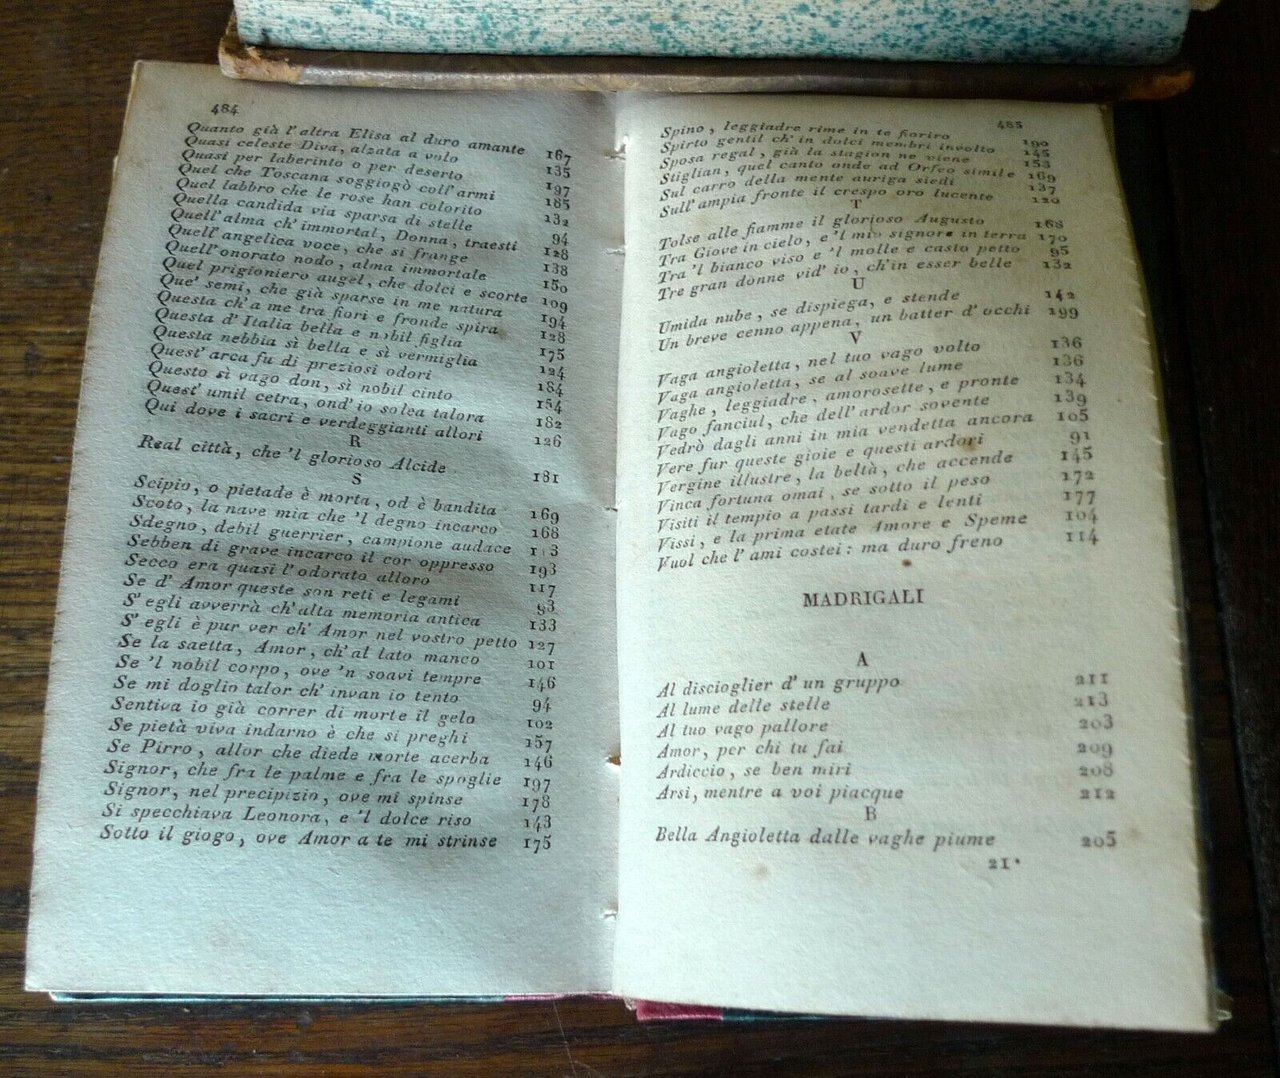 484
Quanto già l'altra Elisa al duro amante 167
Quasi celeste Diva, alzata a volo 135
Quasi per laberinto o per deserto 197
Quel che Toscana soggiogò coll'armi 185
Quel labbro che le rose han colorito 132
Quella candida via sparsa di stelle 94
Quell'alma ch'immortal, Donna, traesti 128
Quell'angelica voce, che si frange 138
Quell'onorato nodo, alma immortale 150
Quel prigioniero augel, che dolci e scorte 109
Que' semi, che già sparse in me natura 194
Questa ch'a me tra fiori e fronde spira 128
Questa d'Italia bella e nobil figlia 175
Questa nebbia sì bella e sì vermiglia 124
Quest' arca fu di preziosi odori 184
Questo sì vago don, sì nobil cinto 154
Quest' umil cetra, ond'io solea talora 182
Qui dove i sacri e verdeggianti allori 126
R
Real città, che 'l glorioso Alcide 181
S
Scipio, o pietade è morta, od è bandita 169
Scoto, la nave mia che 'l degno incarco 168
Sdegno, debil guerrier, campione audace
Sebben di grave incarco il cor oppresso 193
Secco era quasi l'odorato alloro 117
Se d' Amor queste son reti e legami 93
S' egli avverrà ch'alta memoria antica 133
S' egli è pur ver ch' Amor nel vostro petto 127
Se la saetta, Amor, ch'al lato manco 101
Se 'l nobil corpo, ove 'n soavi tempre 146
Se mi doglio talor ch' invan io tento 94
Sentiva io già correr di morte il gelo 102
Se pietà viva indarno è che si preghi 157
Se Pirro, allor che diede morte acerba 146
Signor, che fra le palme e fra le spoglie 197
Signor, nel precipizio, ove mi spinse 178
Si specchiava Leonora, e 'l dolce riso 143
Sotto il giogo, ove Amor a te mi strinse 175
485
Spino, leggiadre rime in te fioriro 190
Spirto gentil ch'in dolci membri involto 145
Sposa regal, già la stagion ne viene 153
Stiglian, quel canto onde ad Orfeo simile 169
Sul carro della mente auriga siedi 137
Sull'ampia fronte il crespo oro lucente 120
T
Tolse alle fiamme il glorioso Augusto 168
Tra Giove in cielo, e 'l mio signore in terra 170
Tra 'l bianco viso e 'l molle e casto petto 95
Tre gran donne vid' io, ch'in esser belle 132
U
Umida nube, se dispiega, e stende 142
Un breve cenno appena, un batter d'occhi 199
V
Vaga angioletta, nel tuo vago volto 136
Vaga angioletta, se al soave lume 136
Vaghe, leggiadre, amorosette, e pronte 134
Vago fanciul, che dell'ardor sovente 139
Vedrò dagli anni in mia vendetta ancora 105
Vere fur queste gioie e questi ardori 91
Vergine illustre, la beltà, che accende 145
Vinca fortuna omai, se sotto il peso 172
Visiti il tempio a passi tardi e lenti 177
Vissi, e la prima etate Amore e Speme 104
Vuol che l'ami costei: ma duro freno 114
MADRIGALI
A
Al discioglier d'un gruppo 211
Al lume delle stelle 213
Al tuo vago pallore 203
Amor, per chi tu fai 209
Ardiccio, se ben miri 208
Arsi, mentre a voi piacque 212
B
Bella Angioletta dalle vaghe piume 205
21*